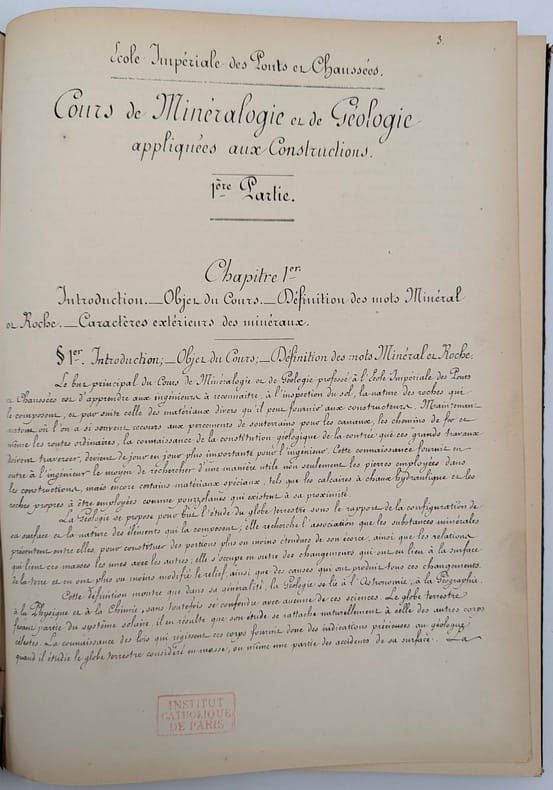 3.
Ecole Impériale des Ponts et Chaussées.
Cours de Minéralogie et de Géologie
appliquées aux Constructions.
1ère Partie.
Chapitre 1er.
Introduction._Objet du Cours._Définition des mots Minéral
et Roche._Caractères extérieurs des minéraux.
§ 1er. Introduction;_Objet du Cours;_Définition des mots Minéral et Roche.
Le but principal du Cours de Minéralogie et de Géologie professé à l'Ecole Impériale des Ponts
et Chaussées est d'apprendre aux ingénieurs à reconnaître, à l'inspection du sol, la nature des roches qui
le composent, et par suite celle des matériaux divers qu'il peut fournir aux constructeurs. Maintenant
surtout où l'on a si souvent recours aux percements de souterrains pour les canaux, les chemins de fer et
même les routes ordinaires, la connaissance de la constitution géologique de la contrée que ces grands travaux
doivent traverser, devient de jour en jour plus importante pour l'ingénieur. Cette connaissance fournit en
outre à l'ingénieur le moyen de rechercher d'une manière utile non seulement les pierres employées dans
les constructions, mais encore certains matériaux spéciaux, tels que les calcaires à chaux hydraulique et les
roches propres à être employées comme pouzzolanes qui existent à sa proximité.
La Géologie se propose pour but l'étude du globe terrestre sous le rapport de la configuration de
sa surface et la nature des éléments qui la composent; elle recherche l'association que les substances minérales
présentent entre elles, pour constituer des portions plus ou moins étendues de son écorce, ainsi que les relations
qui lient ces masses les unes avec les autres; elle s'occupe en outre des changements qui ont eu lieu à la surface
de la terre et en ont plus ou moins modifié le relief, ainsi que des causes qui ont produit tous ces changements.
Cette définition montre que dans sa généralité, la Géologie se lie à l'Astronomie, à la Géographie,
à la Physique et à la Chimie, sans toutefois se confondre avec aucune de ces sciences. Le globe terrestre
faisant partie du système solaire, il en résulte que son étude se rattache naturellement à celle des autres corps
célestes. La connaissance des lois qui régissent ces corps fournit donc des indications précieuses au géologue
quand il étudie le globe terrestre considéré en masse, ou même une partie des accidents de sa surface. La
INSTITUT
CATHOLIQUE
DE PARIS